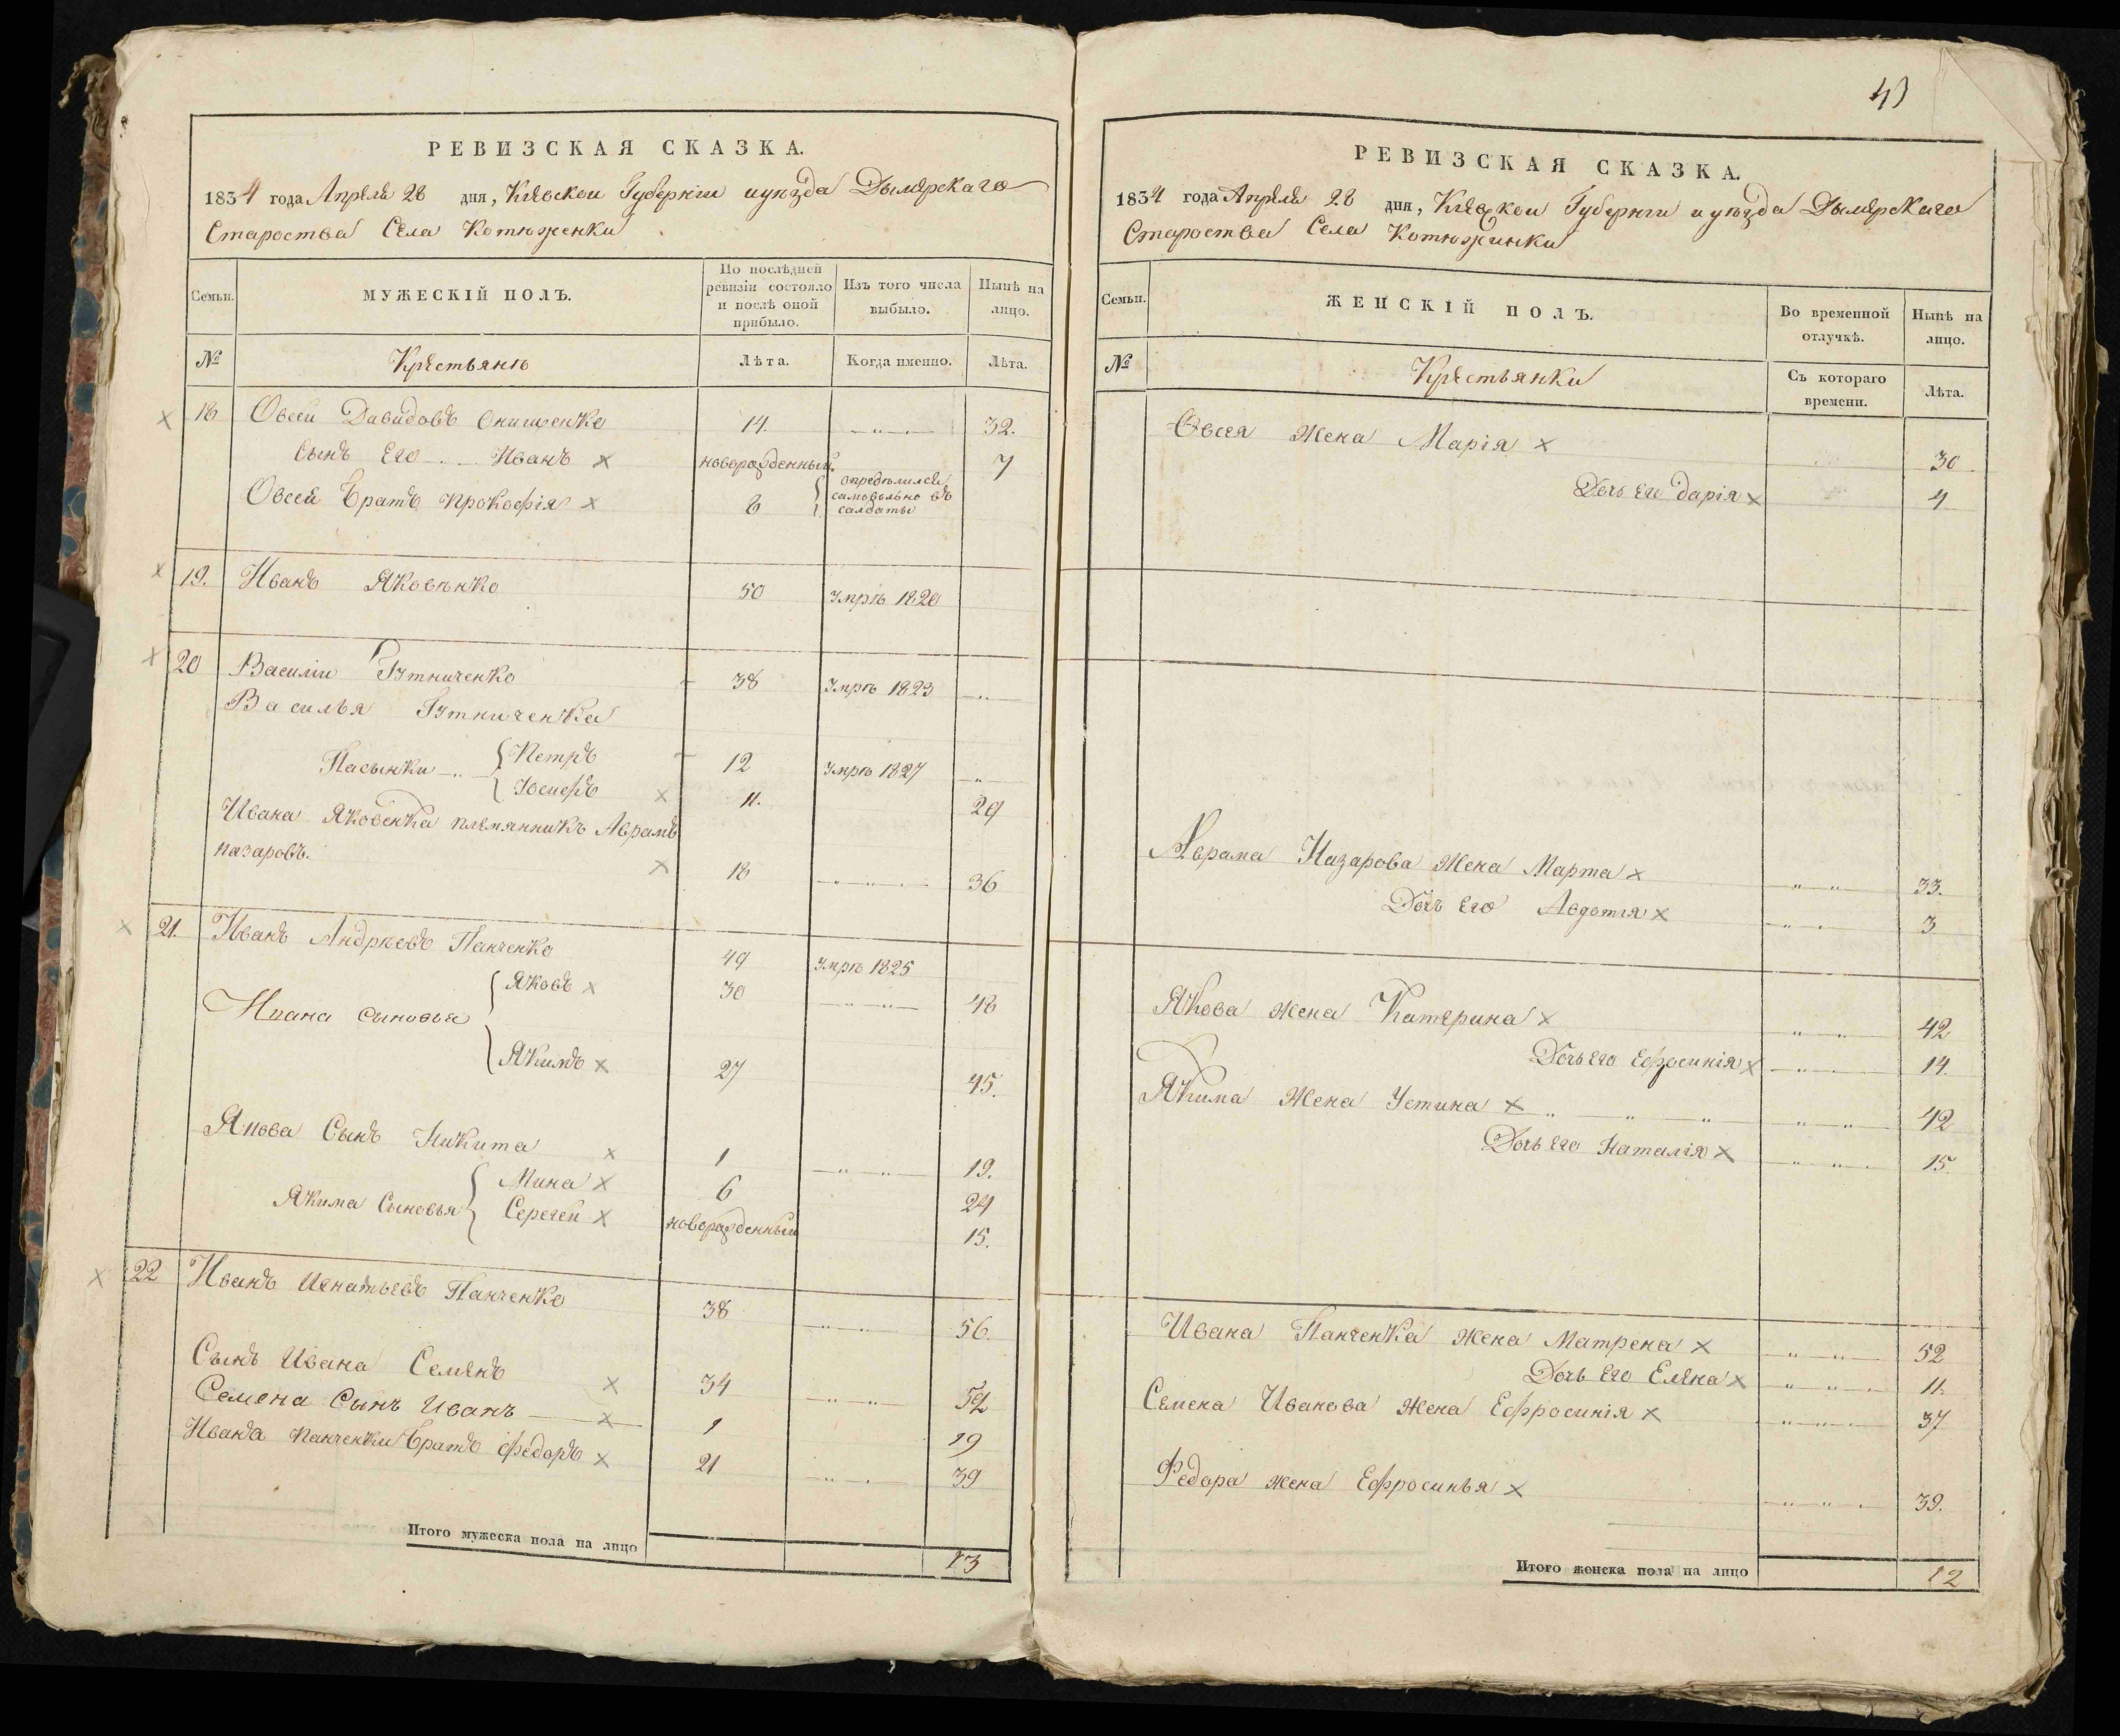 РЕВИЗСКАЯ СКАЗКА.
1834 года Апреля 28 дня, Кіевской Губерніи и уѣзда Дымерскаго
Староства Села Котюженки
Семьи. МУЖЕСКІЙ ПОЛЪ. По послѣдней ревизіи состояло и послѣ оной прибыло. Изъ того числа выбыло. Нынѣ на лицо.
№ Крестьянѣ Лѣта. Когда именно. Лѣта.
18 Овсей Давидовъ Онищенко 14. 32.
Сынъ Его Иванъ новорожденный. 7
Овсея Братъ Прокофія 6 опредѣлился самовольно въ салдаты
19. Иванъ Яковѣнко 50 Умрѣ 1820
20 Василіи Гутниченко 38 Умрѣ 1823
Василья Гутниченка
Пасынки { Петръ 12 Умрѣ 1827
Іосифъ 11. 29
Ивана Яковенка племянникъ Аврамъ
Назаровъ. 18 36
21. Иванъ Андрѣевъ Панченко 49 Умрѣ 1825
Ивана сыновья { Яковъ 30 48
Якимъ 27 45.
Якова Сынъ Никита 1 19.
Якима Сыновья { Мина 6 24
Сергей новорожденный 15.
22 Иванъ Игнатьевъ Панченко 38 56.
Сынъ Ивана Семенъ 34 52
Семена Сынъ Иванъ 1 19
Ивана Панченки Братъ Федоръ 21 39
Итого мужеска пола на лицо 13
43
РЕВИЗСКАЯ СКАЗКА.
1834 года Апреля 28 дня, Кіевской Губерніи и уѣзда Дымерскаго
Староства Села Котюжинки
Семьи. ЖЕНСКІЙ ПОЛЪ. Во временной отлучкѣ. Нынѣ на лицо.
№ Крестьянки Съ котораго времени. Лѣта.
Овсея Жена Марія 30
Дочь Его Дарія 4
Аврама Назарова Жена Марта 33.
Дочь Его Авдотія 3
Якова Жена Катерина 42
Дочь Его Ефросинія 14.
Якима Жена Устина 42
Дочь Его Наталія 15.
Ивана Панченка Жена Матрена 52
Дочь Его Елена 11.
Семена Иванова Жена Ефросинія 37
Федора Жена Ефросинья 39.
Итого женска пола на лицо 12